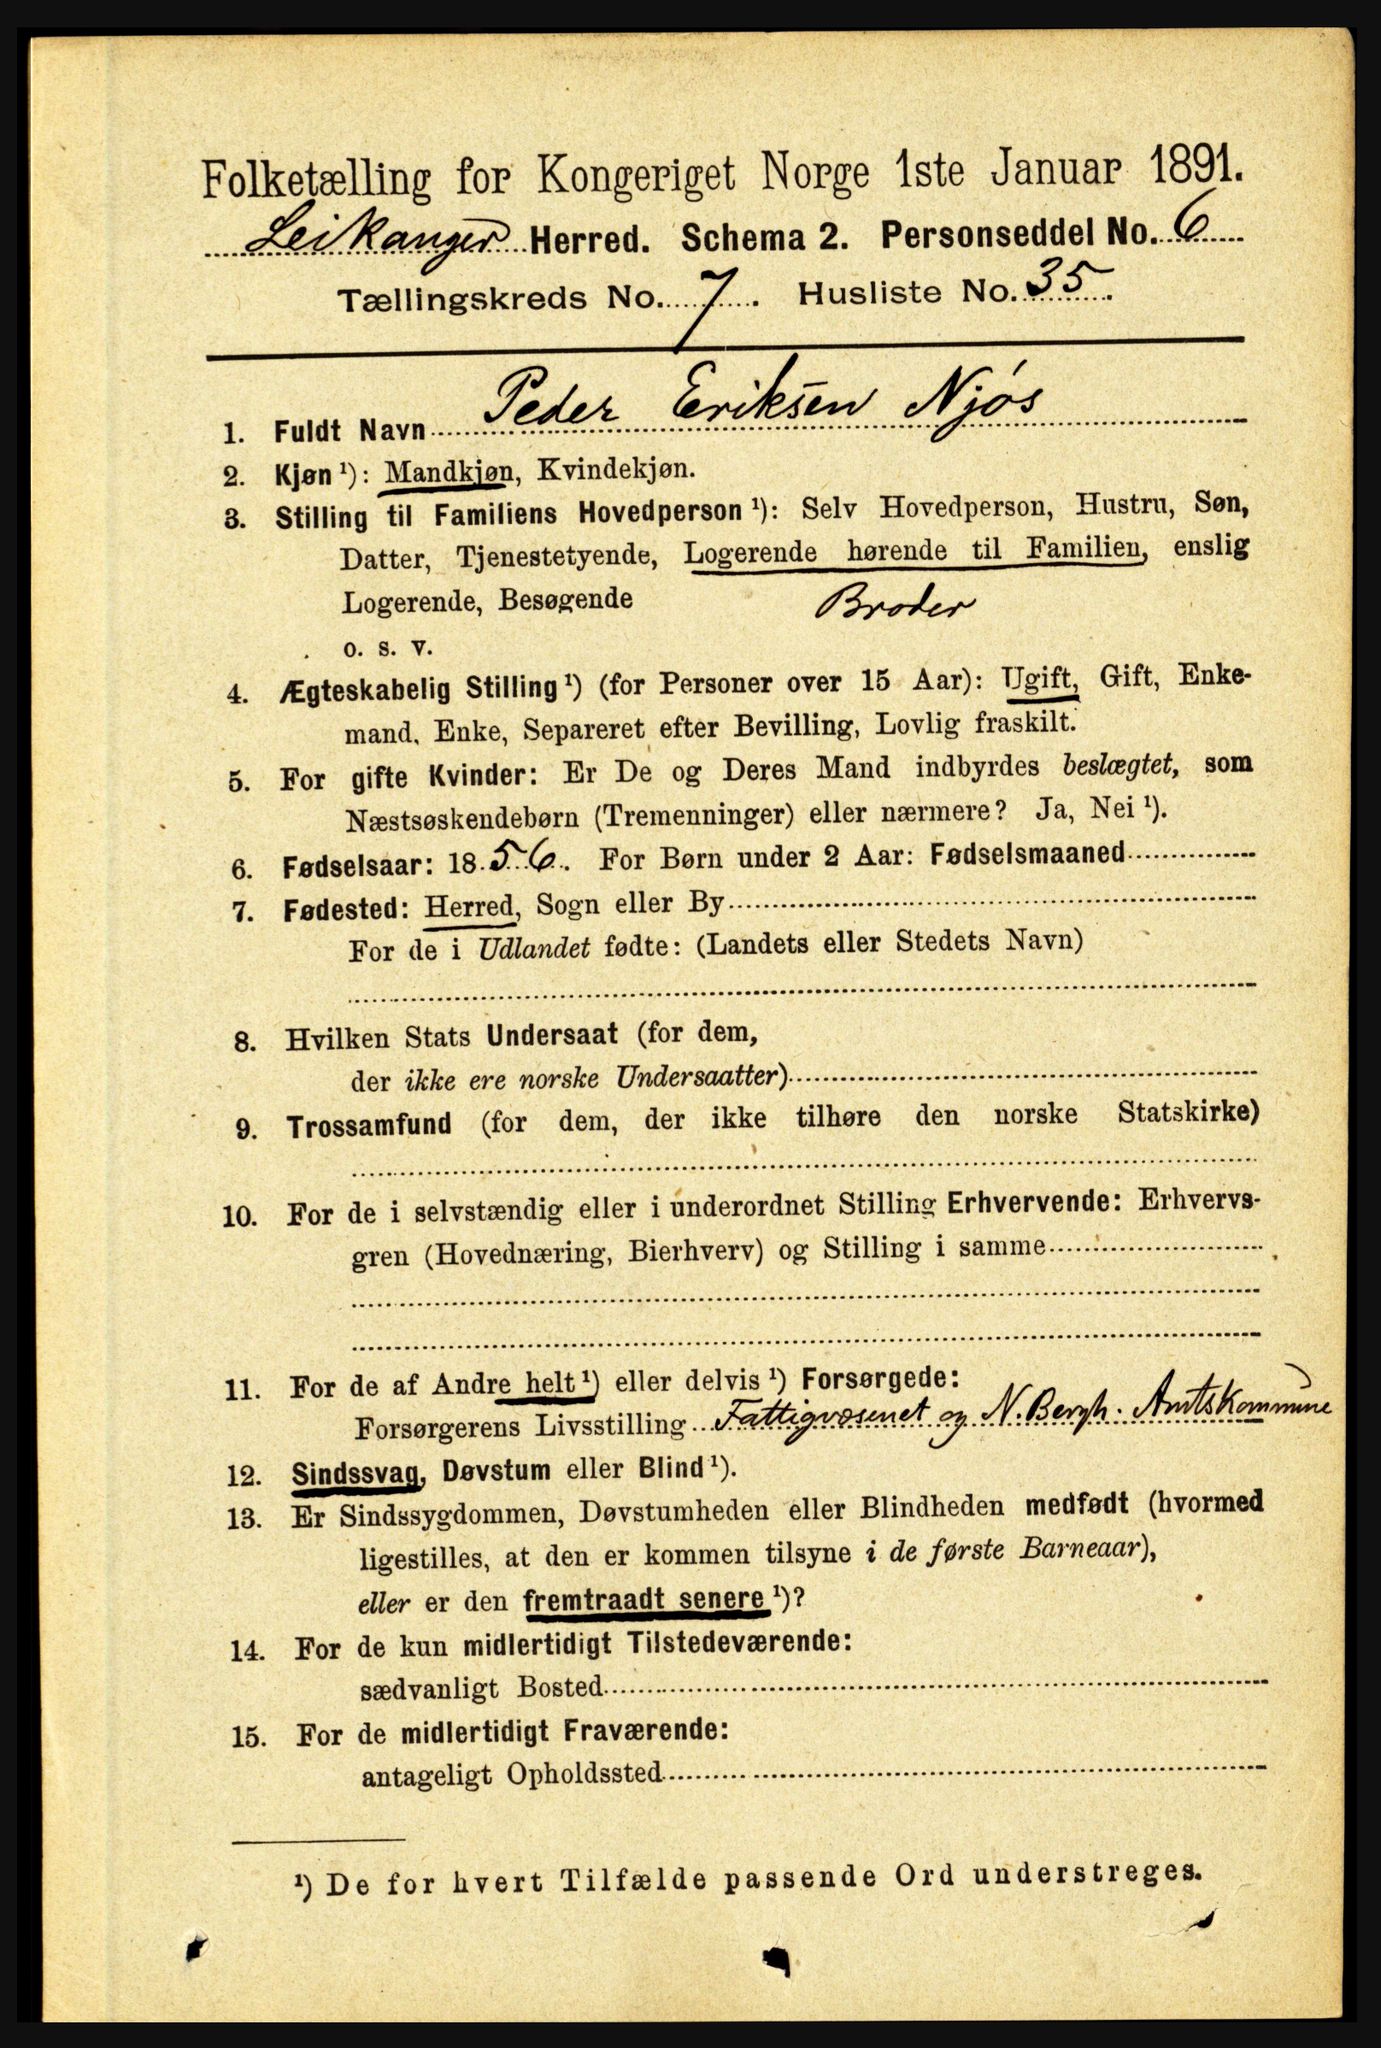 Folketælling for Kongeriget Norge 1ste Januar 1891.
Leikanger Herred. Schema 2. Personseddel No. 6
Tællingskreds No. 7. Husliste No. 35.
1. Fuldt Navn Peder Eriksen Njøs
2. Kjøn ¹): Mandkjøn, Kvindekjøn.
3. Stilling til Familiens Hovedperson ¹): Selv Hovedperson, Hustru, Søn,
Datter, Tjenestetyende, Logerende hørende til Familien, enslig
Logerende, Besøgende Broder
o. s. v.
4. Ægteskabelig Stilling ¹) (for Personer over 15 Aar): Ugift, Gift, Enke-
mand, Enke, Separeret efter Bevilling, Lovlig fraskilt.
5. For gifte Kvinder: Er De og Deres Mand indbyrdes beslægtet, som
Næstsøskendebørn (Tremenninger) eller nærmere? Ja, Nei ¹).
6. Fødselsaar: 1856. For Børn under 2 Aar: Fødselsmaaned
7. Fødested: Herred, Sogn eller By
For de i Udlandet fødte: (Landets eller Stedets Navn)
8. Hvilken Stats Undersaat (for dem,
der ikke ere norske Undersaatter)
9. Trossamfund (for dem, der ikke tilhøre den norske Statskirke)
10. For de i selvstændig eller i underordnet Stilling Erhvervende: Erhvervs-
gren (Hovednæring, Bierhverv) og Stilling i samme
11. For de af Andre helt ¹) eller delvis ¹) Forsørgede:
Forsørgerens Livsstilling Fattigvæsenet og N. Bergh. Amtskommune
12. Sindssvag, Døvstum eller Blind ¹).
13. Er Sindssygdommen, Døvstumheden eller Blindheden medfødt (hvormed
ligestilles, at den er kommen tilsyne i de første Barneaar),
eller er den fremtraadt senere ¹)?
14. For de kun midlertidigt Tilstedeværende:
sædvanligt Bosted
15. For de midlertidigt Fraværende:
antageligt Opholdssted
¹) De for hvert Tilfælde passende Ord understreges.